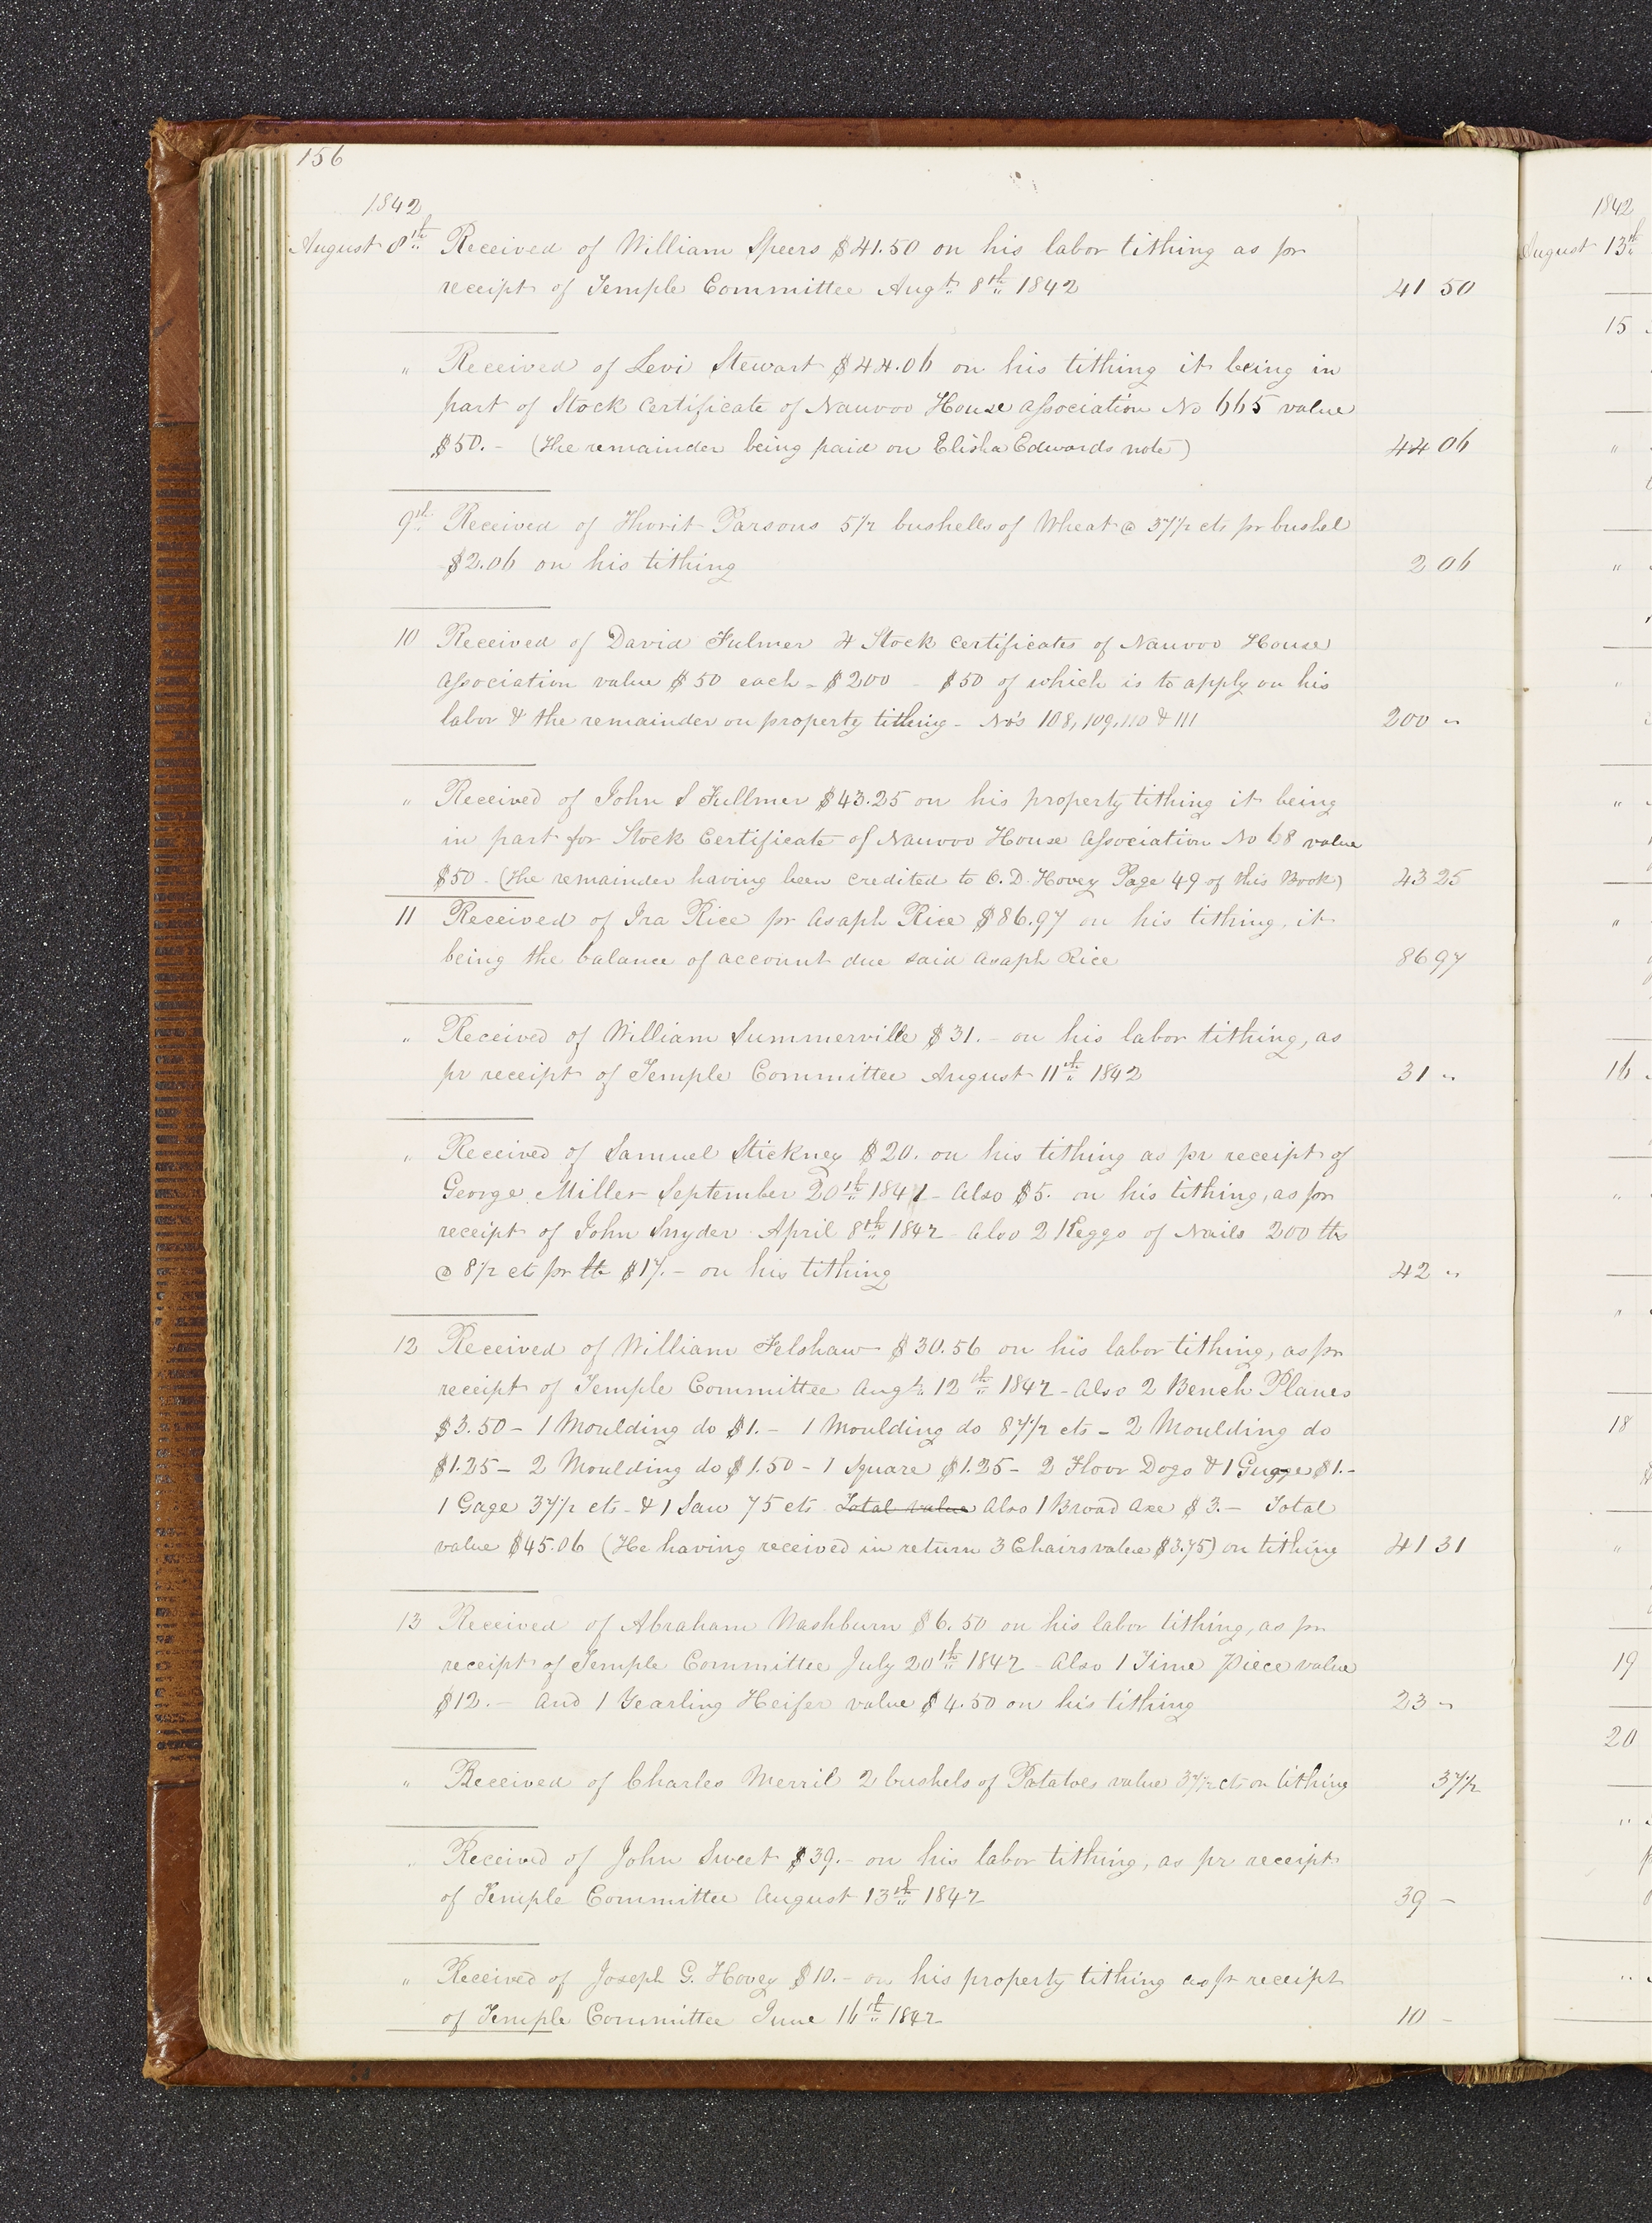 156
1842
August 8th Received of William Speers $41.50 on his labor tithing as pr
receipt of Temple Committee Augt. 8th 1842 41 50
" Received of Levi Stewart $44.06 on his tithing it being in
part of Stock Certificate of Nauvoo House Association No 665 value
$50.- (the remainder being paid on Elisha Edwards note) 44 06
9th Received of Thorit Parsons 5 1/2 bushells of Wheat @ 37 1/2 cts pr bushel
$2.06 on his tithing 2 06
10 Received of David Fulmer 4 Stock Certificates of Nauvoo House
Association value $50 each - $200 - $50 of which is to apply on his
labor & the remainder on property tithing - No's 108, 109, 110 & 111 200 "
" Received of John S Fullmer $43.25 on his property tithing it being
in part for Stock Certificate of Nauvoo House Association No 68 value
$50. (the remainder having been credited to O. D. Hovey Page 49 of this Book) 43 25
11 Received of Ira Rice pr Asaph Rice $86.97 on his tithing, it
being the balance of account due said Asaph Rice 86 97
" Received of William Summerville $31.- on his labor tithing, as
pr receipt of Temple Committee August 11th 1842 31 "
" Received of Samuel Stickney $20. on his tithing as pr receipt of
George Miller September 20th 1841 - Also $5. on his tithing, as pr
receipt of John Snyder April 8th 1842 - Also 2 Keggs of Nails 200 lbs
@ 8 1/2 cts pr lb $17.- on his tithing 42 "
12 Received of William Felshaw $30.56 on his labor tithing, as pr
receipt of Temple Committee Augt. 12th 1842 - Also 2 Bench Planes
$3.50 - 1 Moulding do $1.- 1 Moulding do 87 1/2 cts - 2 Moulding do
$1.25 - 2 Moulding do $1.50 - 1 Square $1.25 - 2 Floor Dogs & 1 Gugge $1.-
1 Gage 37 1/2 cts - & 1 Saw 75 cts Total value Also 1 Broad Axe $3.- Total
value $45.06 (He having received in return 3 Chairs value $3.75) on tithing 41 31
13 Received of Abraham Washburn $6.50 on his labor tithing, as pr
receipt of Temple Committee July 20th 1842 - Also 1 Time Piece value
$12.- And 1 Yearling Heifer value $4.50 on his tithing 23 "
" Received of Charles Merril 2 bushels of Potatoes value 37 1/2 cts on tithing 37 1/2
" Received of John Sweet $39.- on his labor tithing, as pr receipt
of Temple Committee August 13th 1842 39 -
" Received of Joseph G. Hovey $10.- on his property tithing as pr receipt
of Temple Committee June 16th 1842 10 -
1842
August 13th
15
"
"
"
"
"
16
"
"
18
"
19
20
"
"